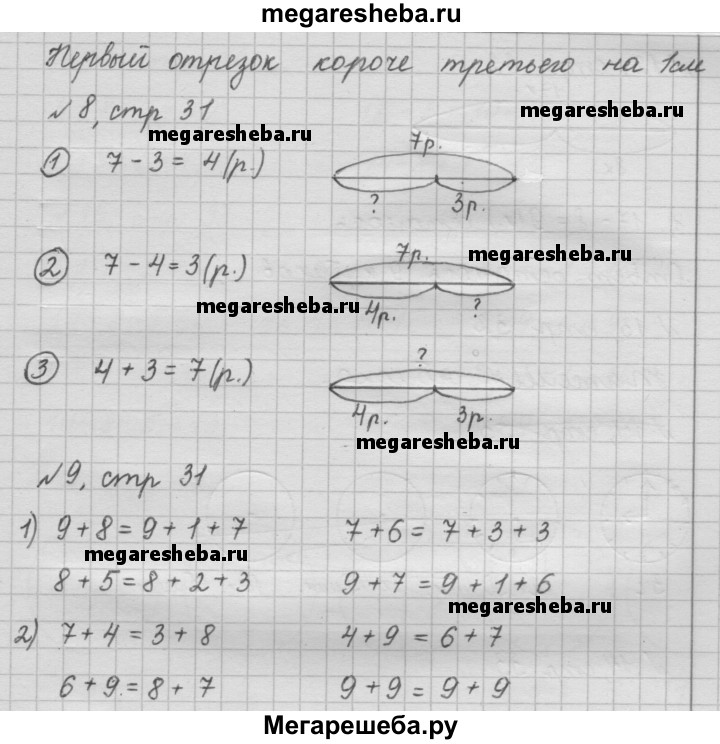 megaresheba.ru
Первый отрезок короче третьего на 1см
№8, стр 31
megaresheba.ru
megaresheba.ru
① 7 - 3 = 4 (р.)
7р.
? 3р.
② 7 - 4 = 3 (р.)
7р.
megaresheba.ru
megaresheba.ru
4р. ?
③ 4 + 3 = 7 (р.)
?
4р. 3р.
megaresheba.ru
№9, стр 31
1) 9 + 8 = 9 + 1 + 7 7 + 6 = 7 + 3 + 3
megaresheba.ru
8 + 5 = 8 + 2 + 3 9 + 7 = 9 + 1 + 6
megaresheba.ru
2) 7 + 4 = 3 + 8 4 + 9 = 6 + 7
6 + 9 = 8 + 7 9 + 9 = 9 + 9
Мегарешеба.ру